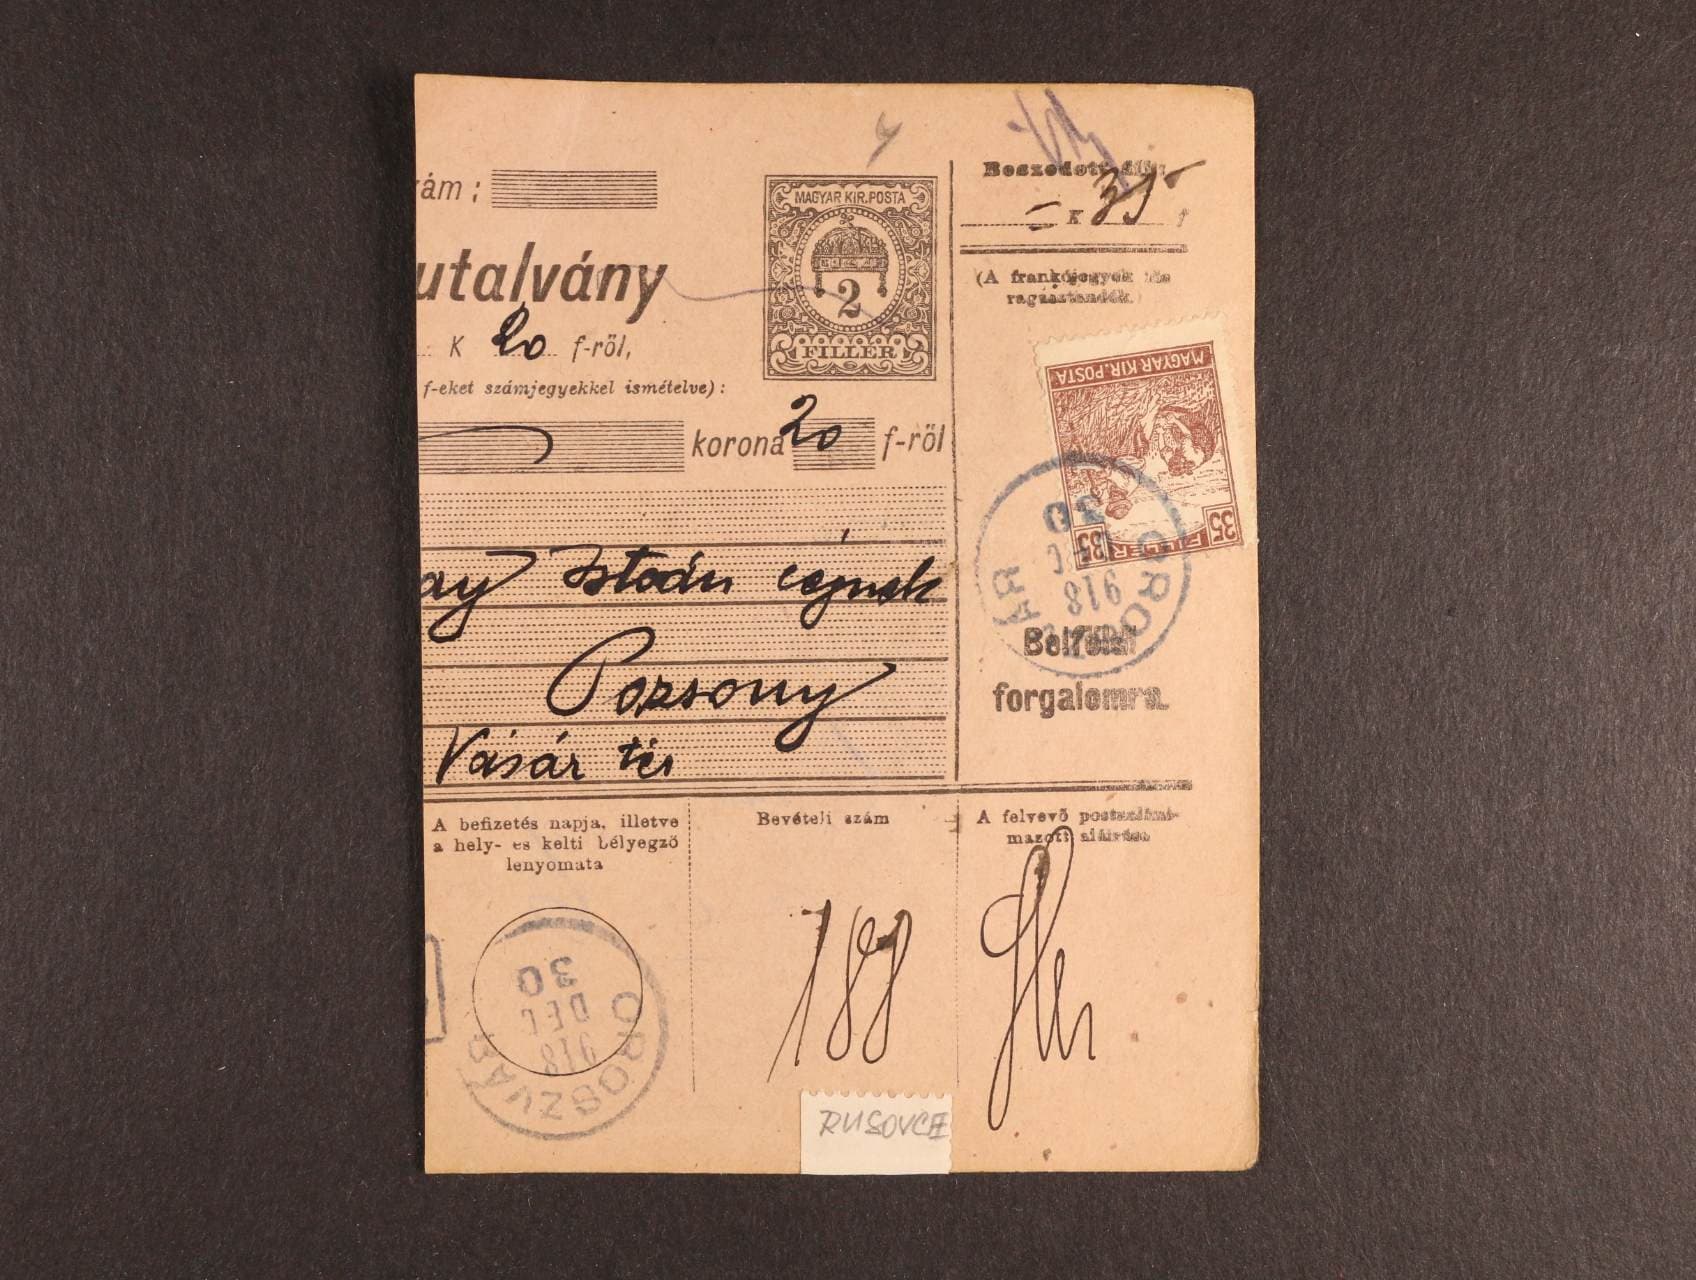 ám:
MAGYAR KIR. POSTA
2
FILLÉR
utalvány
K 20 f-ről,
f-eket számjegyekkel ismételve):
korona 20 f-ről
ay István cégnek
Pozsony
Vásár tér
Beszedett díj:
K 35 f
(A frankójegyek ide
ragasztandók.)
MAGYAR KIR. POSTA
35 FILLÉR 35
OROSZVÁR
918
DEC
30
Belföldi
forgalomra.
A befizetés napja, illetve
a hely- és kelti bélyegző
lenyomata
Bevételi szám
A felvevő postaalkal-
mazott aláírása
188
OROSZVÁR
918
DEC
30
RUSOVCE